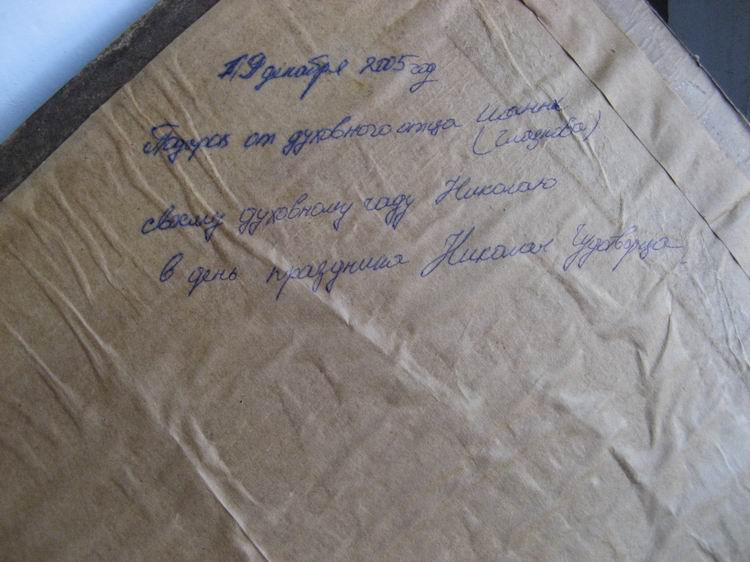 19 декабря 2005 год
Подарок от духовного отца Иоанна
(Глазкова)
своему духовному чаду Николаю
в день праздника Николая Чудотворца